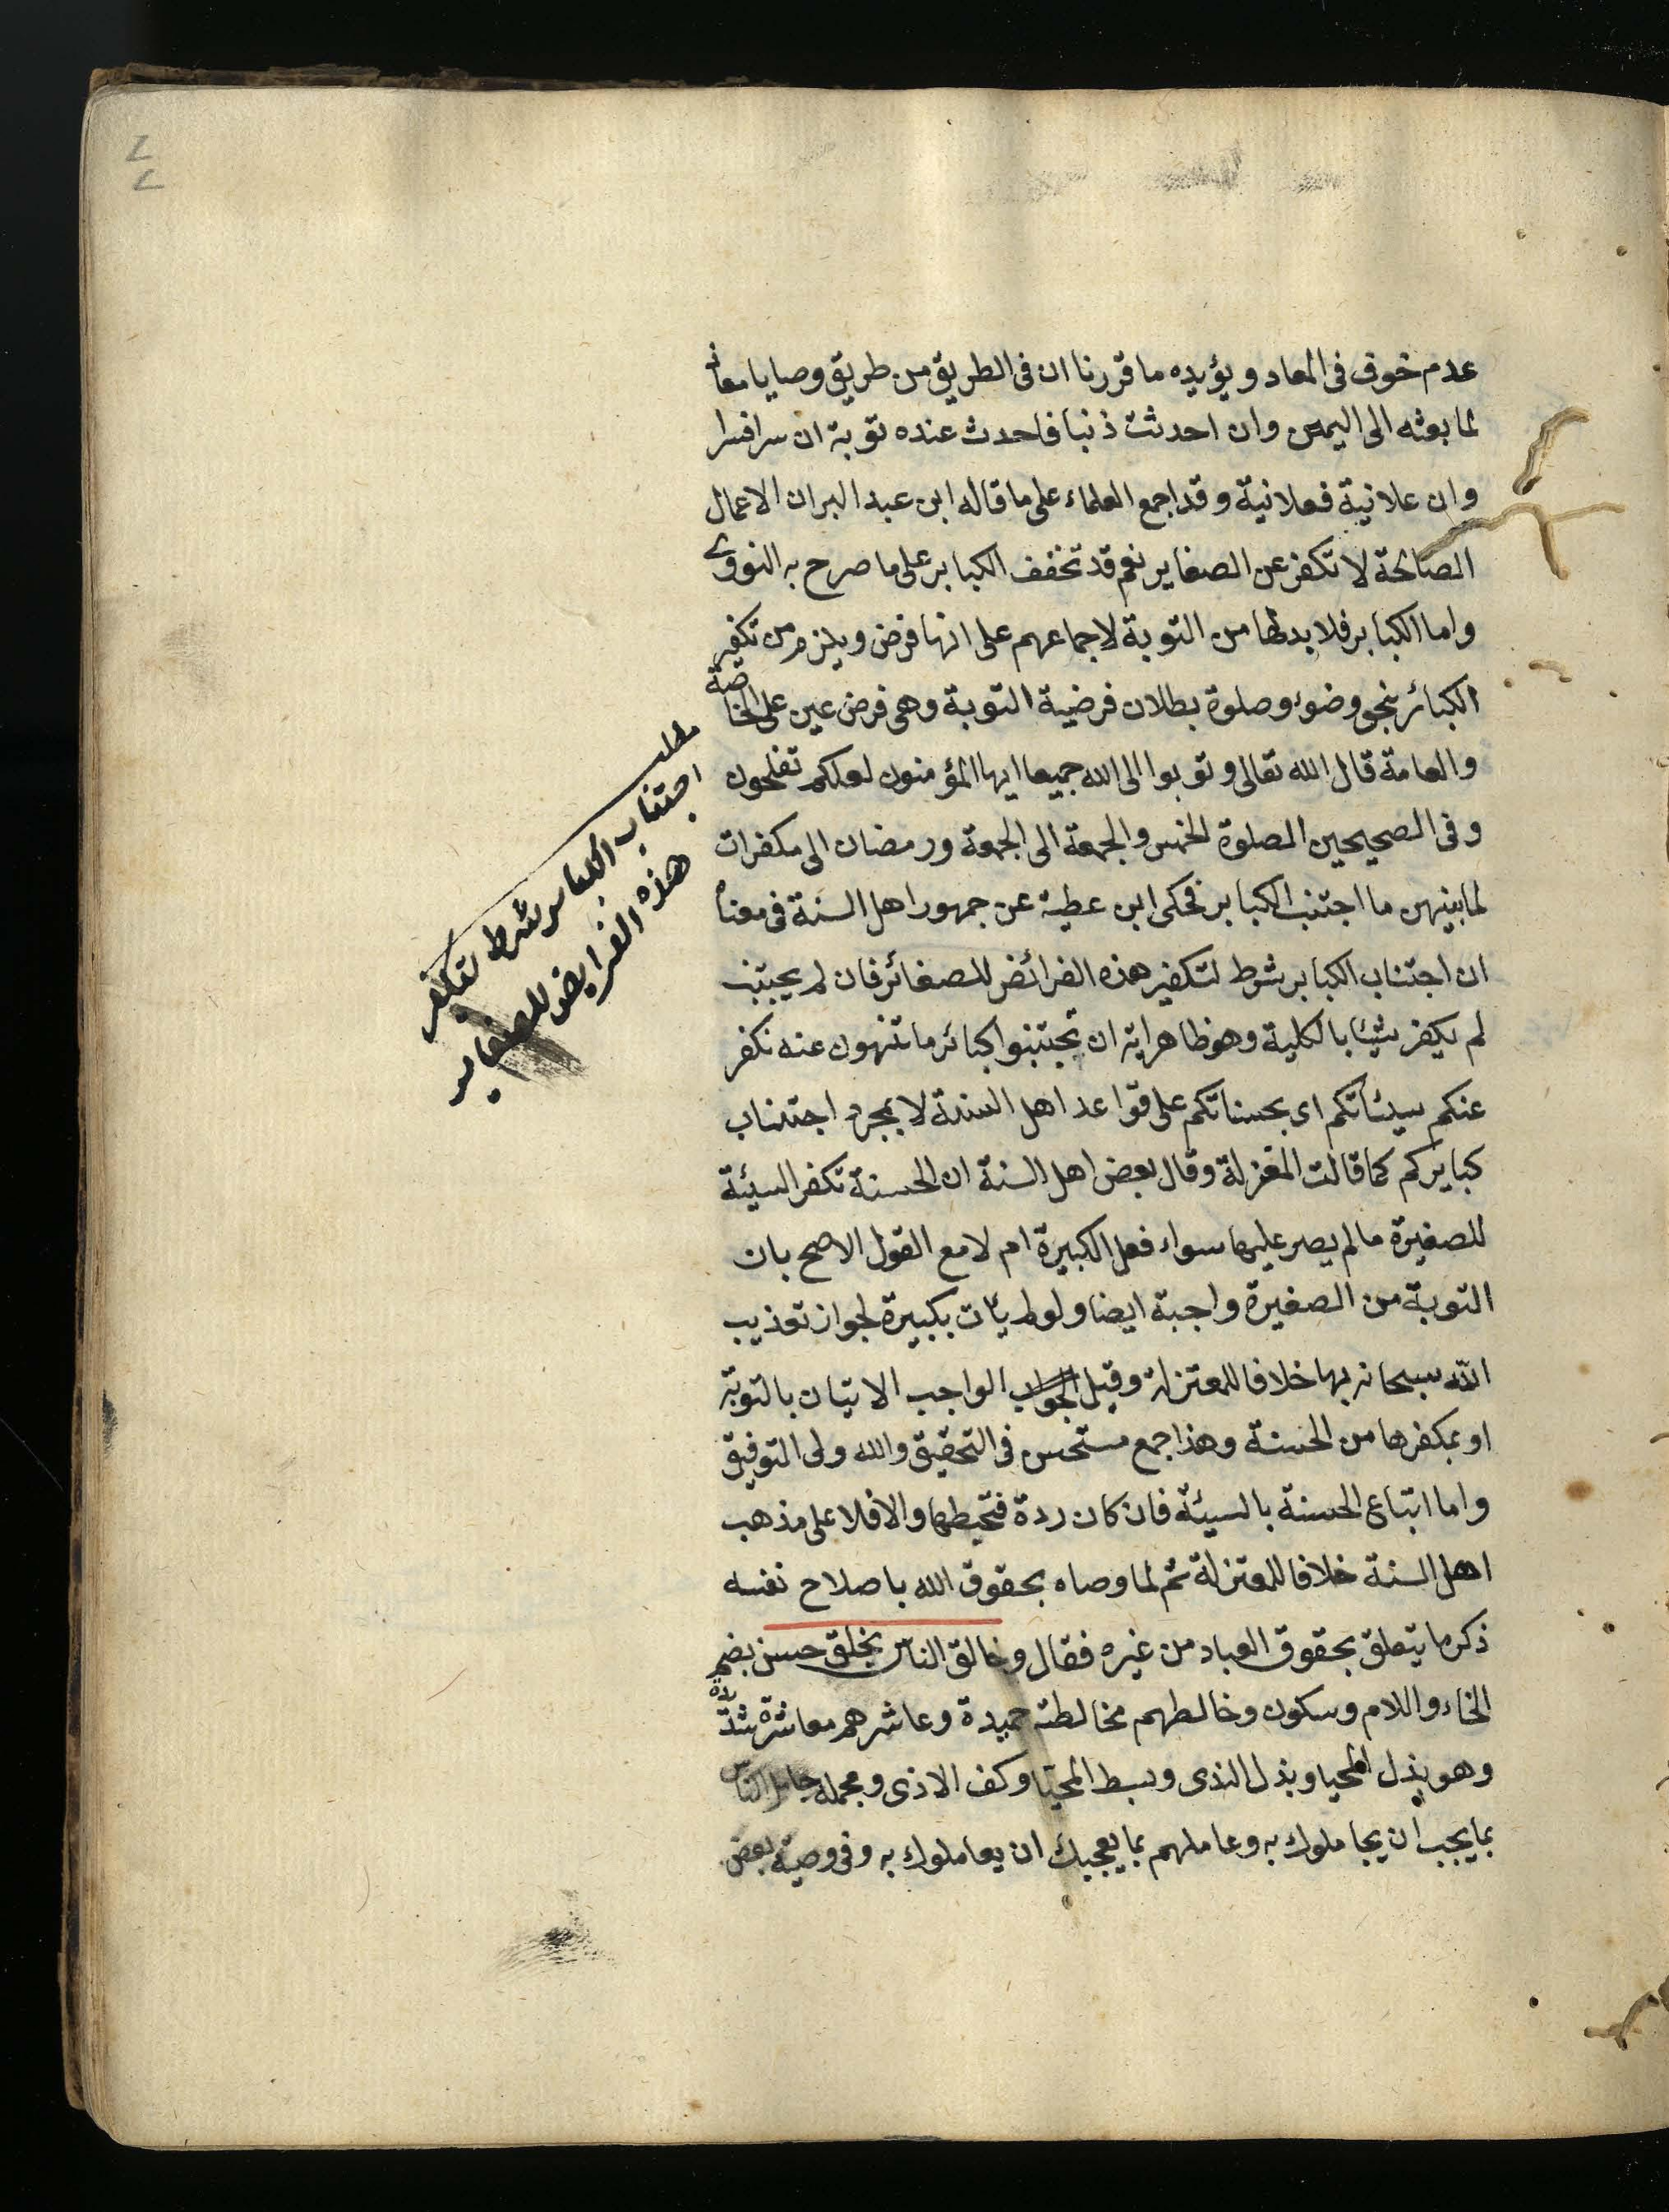 عدم خوف فى المعاد ويؤيده ما قررنا ان فى الطريق من طريق وصايا معاذ
لما بعثه الى اليمن وان احدثت ذنبا فاحدث عنده توبة ان سرا فسرا
وان علانية فعلانية وقد اجمع العلماء على ما قاله ابن عبد البر ان الاعمال
الصالحة لا تكفر عن الصغاير نعم قد تخفف الكباير على ما صرح به النووى
واما الكباير فلا بد لها من التوبة لاجماعهم على انها فرض ويلزم من تكفير
الكبائر بنحو وضوء وصلوة بطلان فرضية التوبة وهى فرض عين على الخاصة
والعامة قال الله تعالى وتوبوا الى الله جميعا ايها المؤمنون لعلكم تفلحون
وفى الصحيحين الصلوة الخمس والجمعة الى الجمعة ورمضان الى مكفرات
لما بينهن ما اجتنب الكباير فحكى ابن عطية عن جمهور اهل السنة فى معناه
ان اجتناب الكباير شرط لتكفير هذه الفرائض للصغائر فان لم يجتنب
لم يكفر شيئا بالكلية وهو ظاهر اية ان تجتنبوا كبائر ما تنهون عنه نكفر
عنكم سيئاتكم اى بحسناتكم على قواعد اهل السنة لا بمجرد اجتناب
كبايركم كما قالت المعتزلة وقال بعض اهل السنة ان الحسنة تكفر السيئة
للصغيرة ما لم يصر عليها سواء فعل الكبيرة ام لا مع القول الاصح بان
التوبة من الصغيرة واجبة ايضا ولو لم يأت بكبيرة لجواز تعذيب
الله سبحانه بها خلافا للمعتزلة وقيل الواجب الاتيان بالتوبة
او بمكفرها من الحسنة وهذا جمع مستحسن فى التحقيق والله ولى التوفيق
واما اتباع الحسنة بالسيئة فان كان ردة فتحبطها والا فلا على مذهب
اهل السنة خلافا للمعتزلة ثم لما وصاه بحقوق الله باصلاح نفسه
ذكر ما يتعلق بحقوق العباد من غيره فقال وخالق الناس بخلق حسن بضم
الخاء واللام وسكون وخالطهم مخالطة حميدة وعاشرهم معاشرة
وهو بذل المحيا وبذل الندى وبسط المحيا وكف الاذى ومجمله جامل الناس
بما يجب ان يجاملوك به وعاملهم بما يعجبك ان يعاملوك به وفى وصية بعض
مطلب
اجتناب الكباير شرط لتكفير
هذه الفرايض للصغاير